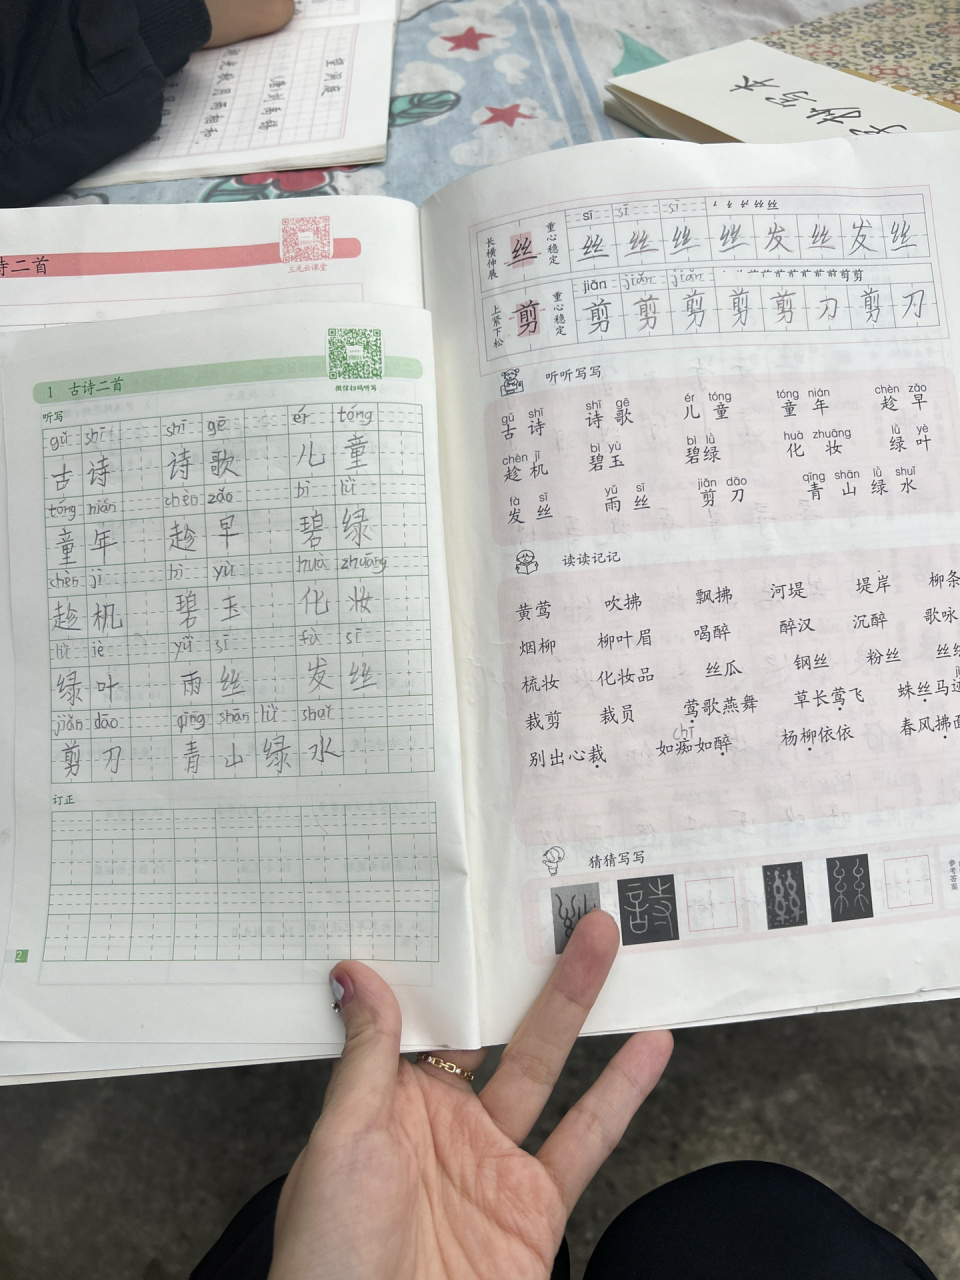 诗二首
三元云课堂
微信扫码听写
1 古诗二首
听写
gǔ shī shī gē ér tóng
古 诗 诗 歌 儿 童
tóng nián chèn zǎo bì lǜ
童 年 趁 早 碧 绿
chèn jī bì yù huà zhuāng
趁 机 碧 玉 化 妆
lǜ iè yǔ sī fà sī
绿 叶 雨 丝 发 丝
jiǎn dāo qīng shān lǜ shuǐ
剪 刀 青 山 绿 水
订正
2
望洞庭
(唐)刘禹锡
长横伸展 丝 重心稳定
sī sī sī
丝 丝 丝 丝 发 丝 发 丝
上紧下松 剪 重心稳定
jiǎn jiǎn jiǎn
剪 剪 剪 剪 剪 刀 剪 刀
听听写写
gǔ shī shī gē ér tóng tóng nián chèn zǎo
古 诗 诗 歌 儿 童 童 年 趁 早
chèn jī bì yù bì lǜ huà zhuāng lǜ yè
趁 机 碧 玉 碧 绿 化 妆 绿 叶
fà sī yǔ sī jiǎn dāo qīng shān lǜ shuǐ
发 丝 雨 丝 剪 刀 青 山 绿 水
读读记记
黄莺 吹拂 飘拂 河堤 堤岸 柳条
烟柳 柳叶眉 喝醉 醉汉 沉醉 歌咏
梳妆 化妆品 丝瓜 钢丝 粉丝
裁剪 裁员 莺歌燕舞 草长莺飞 蛛丝马迹
chī
别出心裁 如痴如醉 杨柳依依 春风拂面
猜猜写写
詩
参考答案